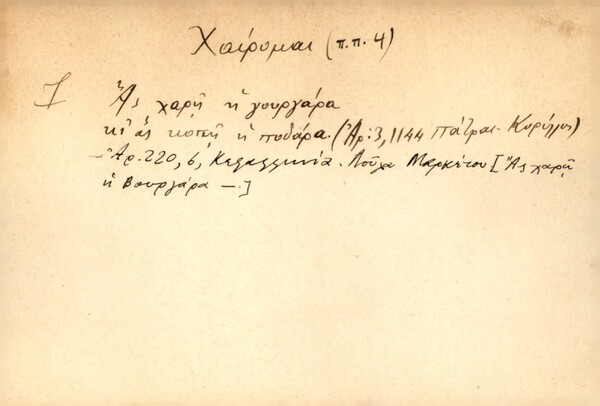 Χαίρομαι (π.π. 4)
1
Ἂς χαρῇ ἡ γουργάρα
κι' ἂς κοπῇ ἡ ποδάρα. (Ἀρ. 3, 1144 Πάτραι - Κορύλλος)
- Ἀρ. 220, 6, Κεφαλληνία. Λούλα Μαρκέτου [Ἂς χαρῇ
ἡ Βουργάρα —.]